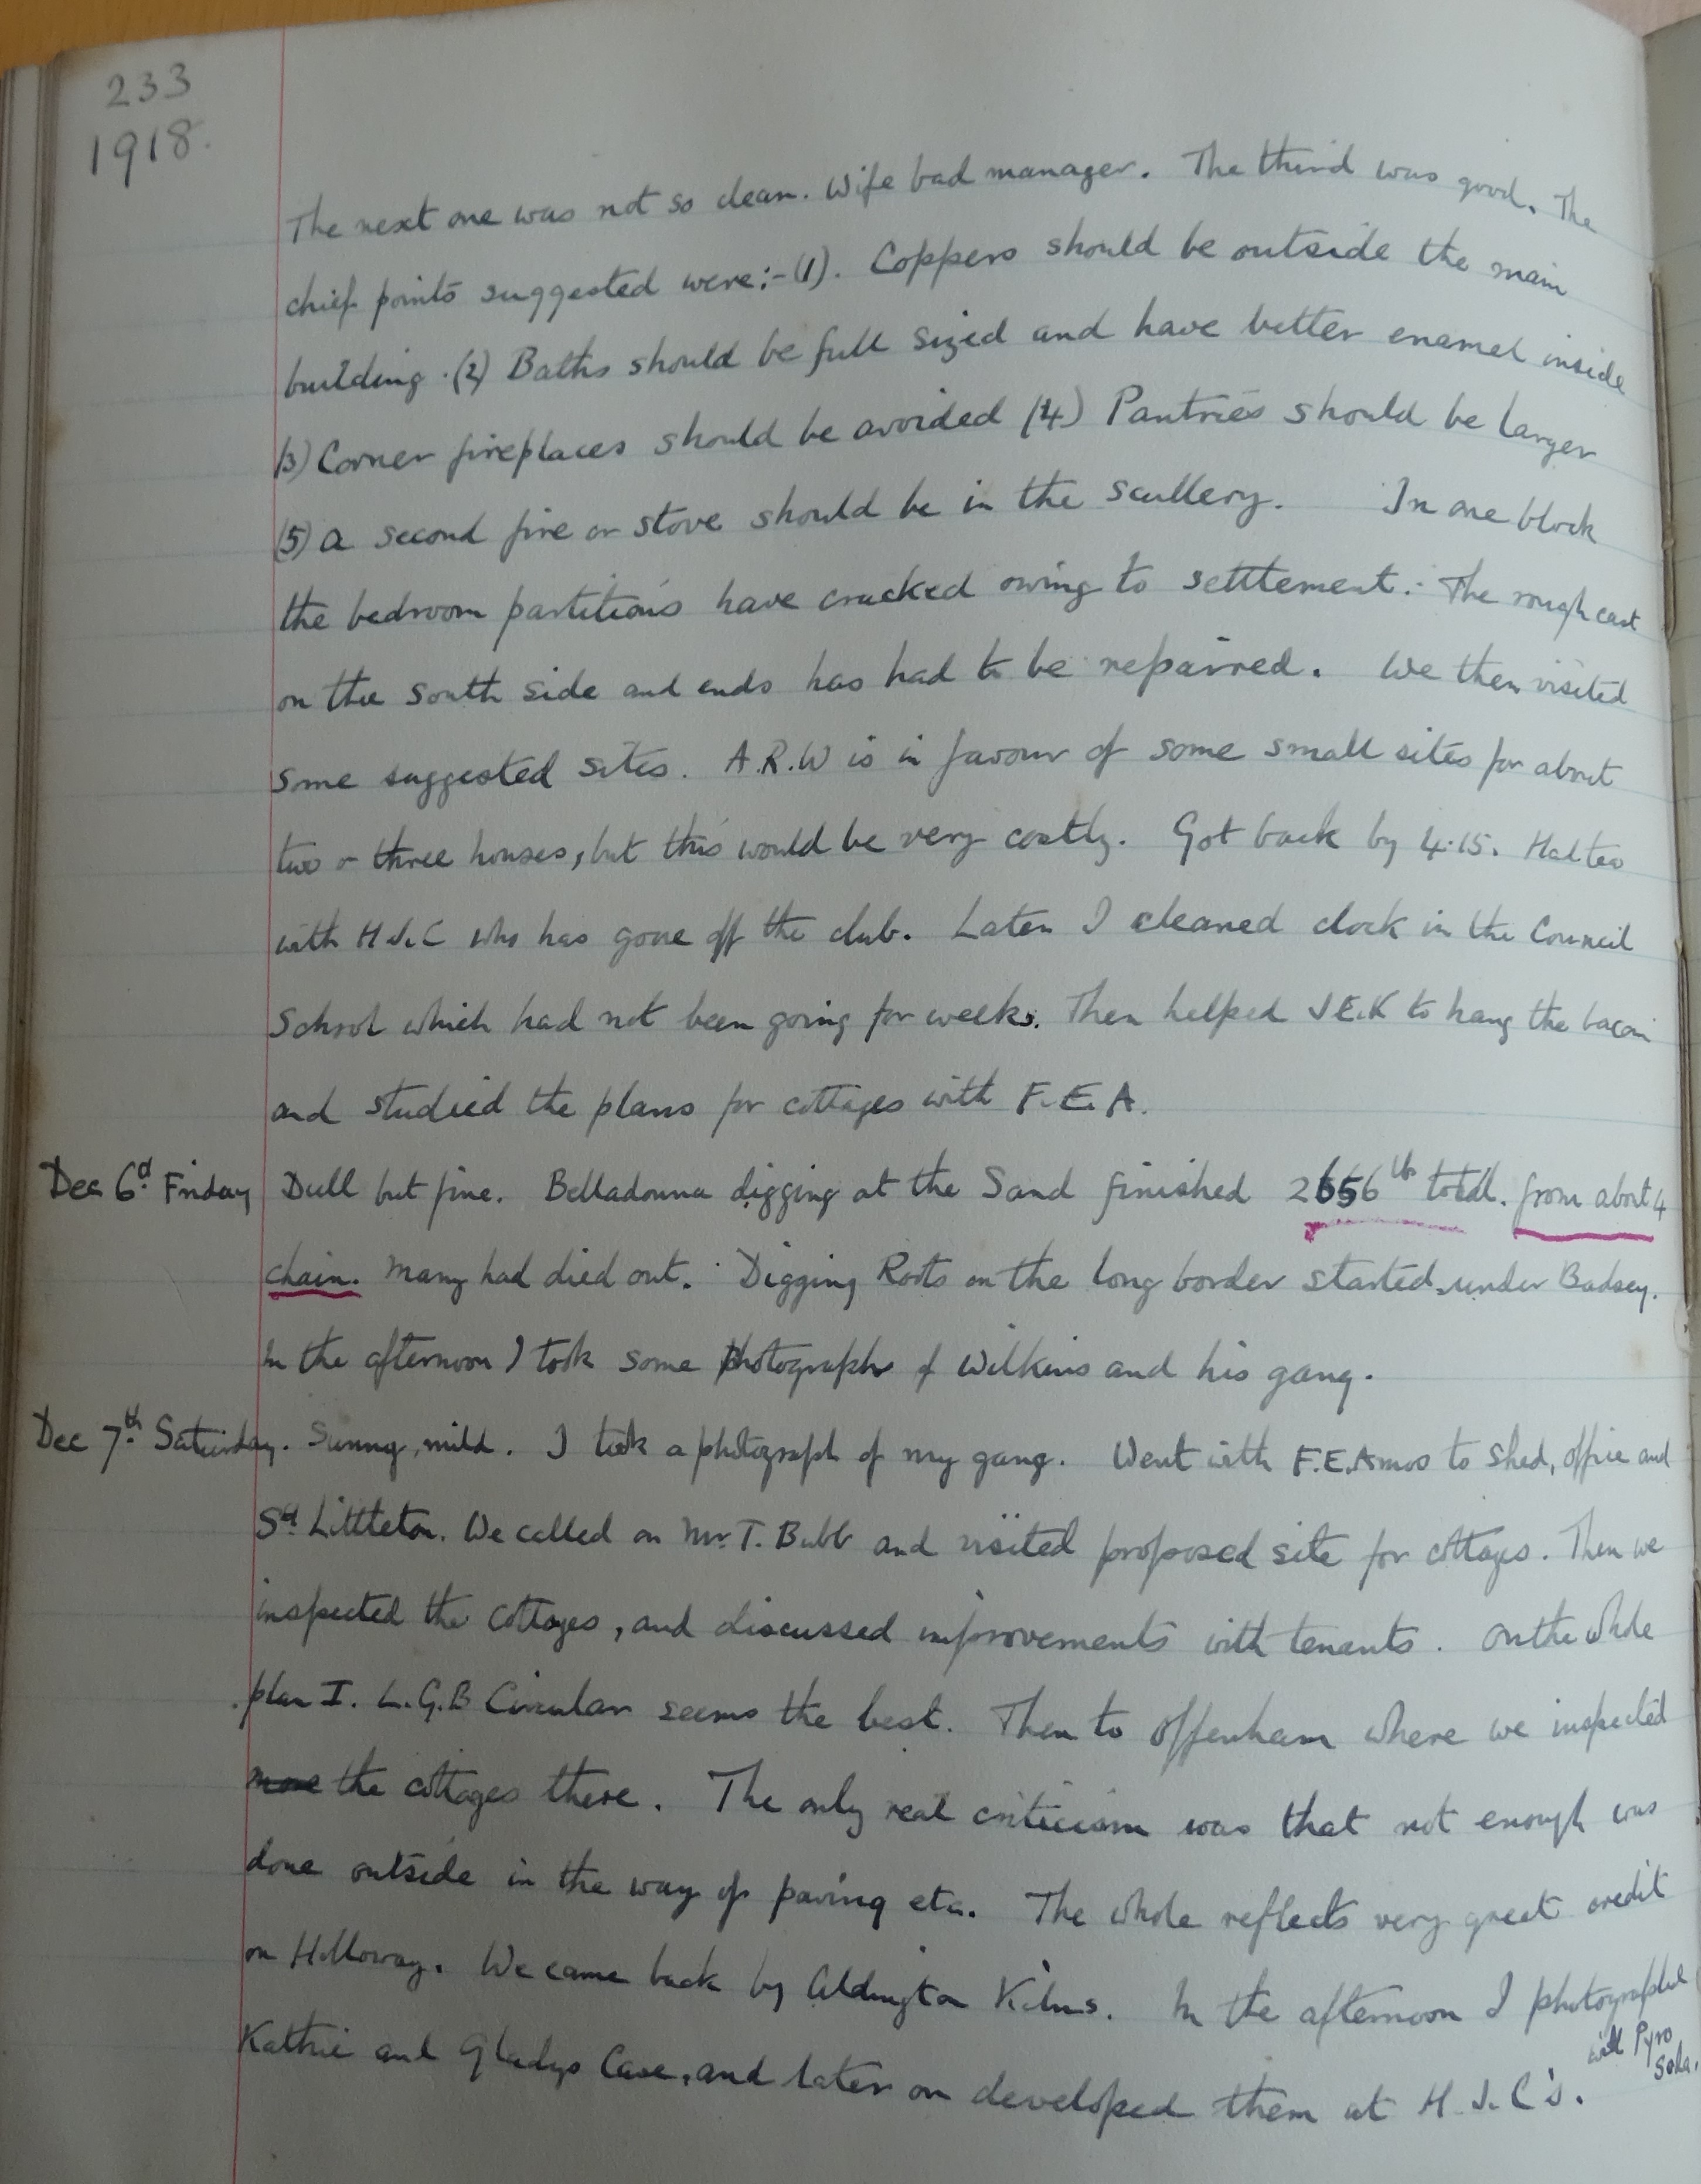 233
1918.
The next one was not so clean. Wife bad manager. The third was good. The
chief points suggested were:- (1). Coppers should be outside the main
building. (2) Baths should be full sized and have better enamel inside
(3) Corner fireplaces should be avoided (4) Pantries should be larger
(5) A second fire or stove should be in the scullery. In one block
the bedroom partitions have cracked owing to settlement. The rough cast
on the south side and ends has had to be repaired. We then visited
some suggested sites. A.R.W is in favour of some small sites for about
two or three houses, but this would be very costly. Got back by 4.15. Had tea
with H.J.C who has gone off the club. Later I cleaned clock in the Council
School which had not been going for weeks. Then helped J.E.K to hang the bacon
and studied the plans for cottages with F.E.A.
Dec 6d. Friday Dull but fine. Belladonna digging at the Sand finished 2656 lb total. from about 4
chain. Many had died out. Digging Roots on the long border started under Badsey.
In the afternoon I took some photographs of Wilkins and his gang.
Dec 7th. Saturday. Sunny, mild. I took a photograph of my gang. Went with F.E.Amos to Shed, office and
Sd. Littleton. We called on Mr. T. Bubb and visited proposed site for cottages. Then we
inspected the cottages, and discussed improvements with tenants. On the whole
plan I. L.G.B Circular seems the best. Then to Offenham where we inspected
more the cottages there. The only real criticism was that not enough was
done outside in the way of paving etc. The whole reflects very great credit
on Holloway. We came back by Aldington Kilns. In the afternoon I photographed
Kathie and Gladys Case, and later on developed them at H.J.C's. with Pyro
Soda.